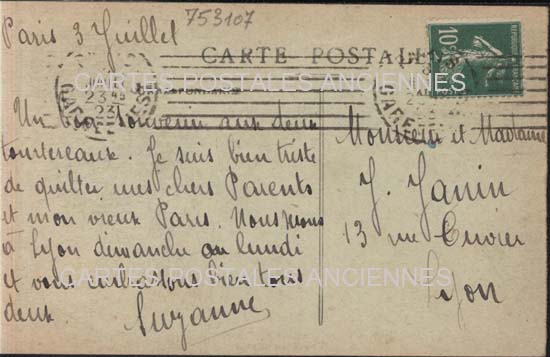 Paris 3 Juillet
753107
CARTE POSTALE
CARTES POSTALES ANCIENNES
Un bon souvenir aux deux
tourtereaux. Je suis bien triste
de quitter mes chers Parents
et mon vieux Paris. Nous
à Lyon dimanche ou lundi
et vous embrassons bien tous
deux
Suzanne
Monsieur et Madame
J. Janin
13 rue Cuvier
Lyon
CARTES POSTALES ANCIENNES
10c